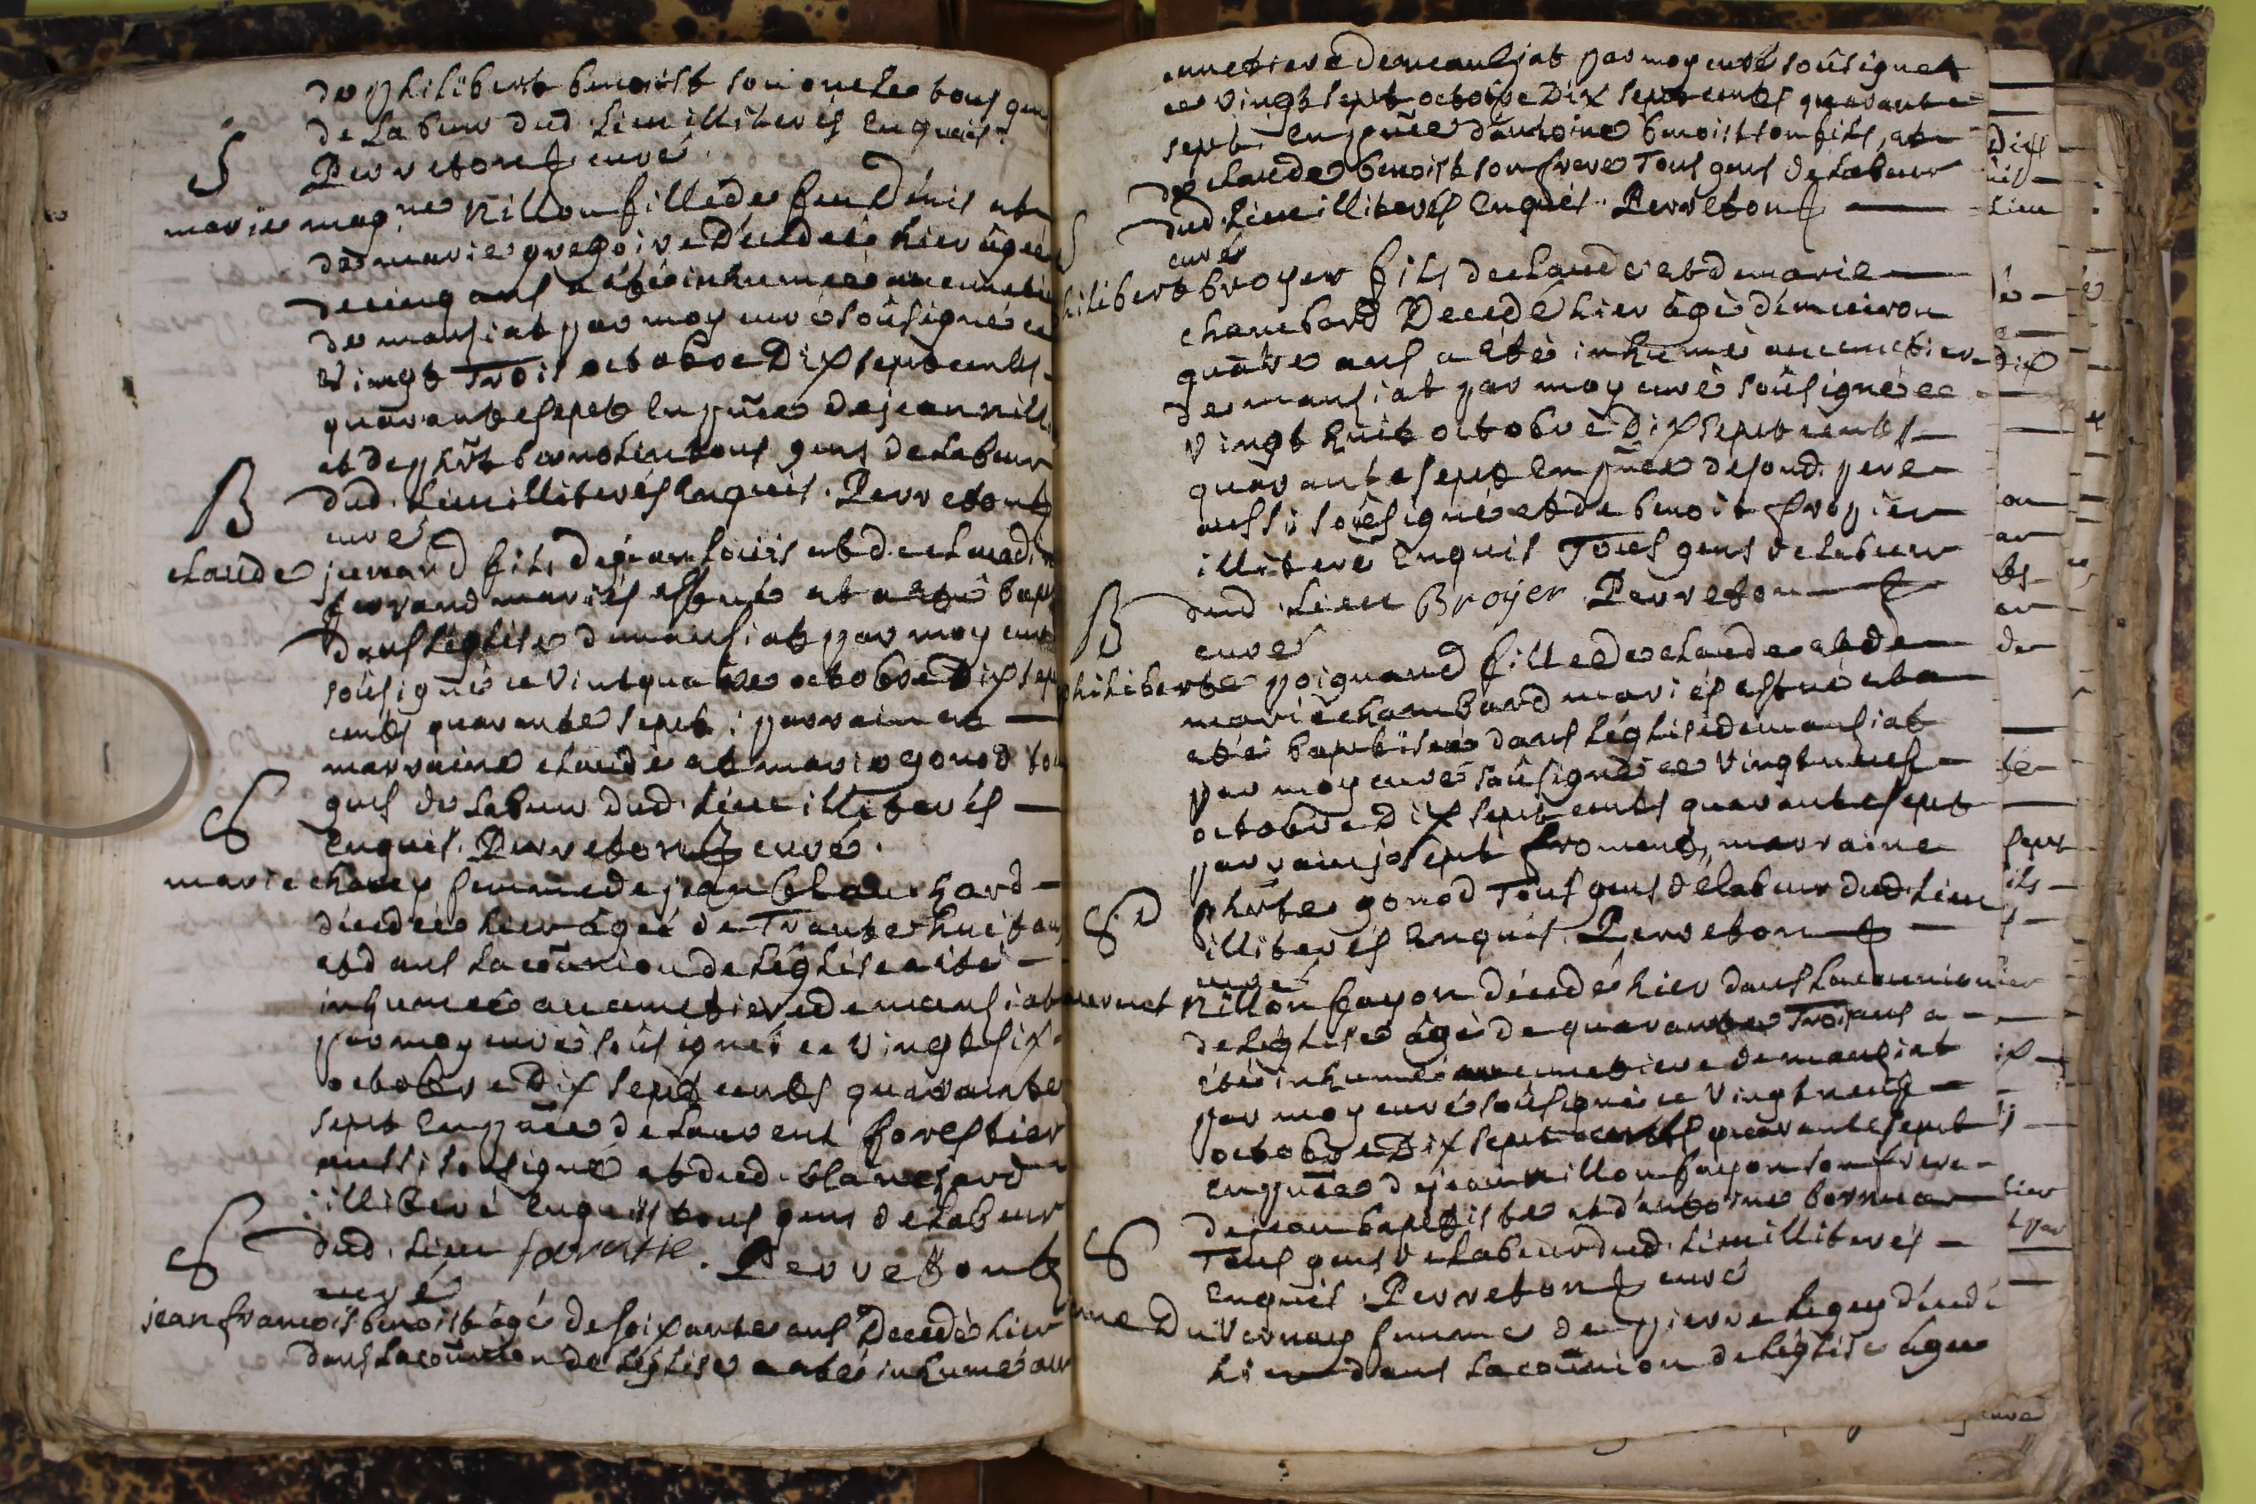 de philibert benoist son oncle tous gens
de labeur dud. lieu illiterés enquis.
Perreton curé.
S
marie mag.ne Nillon fille de feu Dénis et
de marie gregoire décedeé hier âgeé
de cinq ans a été inhumeé au cimetiere
de mansiat par moy curé soûsigné ce
Vingt Trois octobre Dix sept cents
quarante sept en pñce de jean nill
et de phrt bornolin tous gens de labeur
dud. lieu illiterés enquis. Perreton
curé
B
claude juvand fils de jean louïs et de claudi
ferrand mariés est né et a eté bapt
dans l'église de mansiat par moy curé
soûsigné ce Vint quatre octobre Dix sept
cents quarante sept : parrain et
marraine claude et marie gonod tou
gens de labeur dud. lieu illiterés
enquis. Perreton curé.
S
marie charey femme de jean blanchard
décedeé hier âgeé de Trante huit ans
et dans la coñunion de l'église a été
inhumeé au cimetiere de mansiat
par moy curé soûsigné ce vingt six
octobre Dix sept cents quarante
sept en pñce de laurent forestier
aussi soûsigné et dud. blanchard
illiteré enquis tous gens de labeur
dud. lieu foretie. Perreton
curé
S
jean françois benoist âgé de soixante ans Decedé hier
dans la coñunion de l'église a eté inhumé au
cimetiere de mansjat par moy curé soûsigné
ce vingt sept octobre Dix sept cents quarante
sept en pñce d'antoine benoist son fils, et
de claude benoist son frere Tous gens de labeur
dud. lieu illiterés enquis. Perreton
curé
S
hilibert broyer fils de claude et de marie
chambard Decedé hier âgé d'environ
quatre ans a été inhumé au cimetiere
de mansiat par moy curé soûsigné ce
Vingt huit octobre Dix sept cents
quarante sept en pñce de sond. pere
aussi soûsigné et de benoit fropier
illiteré enquis Tous gens de labeur
dud. lieu Broyer Perreton
curé
B
philiberte poignand fille de claude et de
marie chambard mariés est né et a
eté baptiseé dans l'église de mansiat
par moy curé soûsigné ce Vingt neuf
octobre Dix sept cents quarante sept
parrain joseph froment, marraine
phrte gonod Tous gens de labeur dud. lieu
illiterés enquis. Perreton
curé
S
Nillon fayon décedé hier dans la counion
de l'église âgé de quarante Trois ans a
été inhumé au cimetiere de mansiat
par moy curé soûsigné ce Vingt neuf
octobre Dix sept cents quarante sept
en pñce de jean nillon fayon son frere
de jean baptiste et d'antoine
Tous gens de labeur dud. lieu illiterés
enquis. Perreton curé
S
Duvernay femme de pierre legey décedé
hier dans la coñunion de l'église âgeé